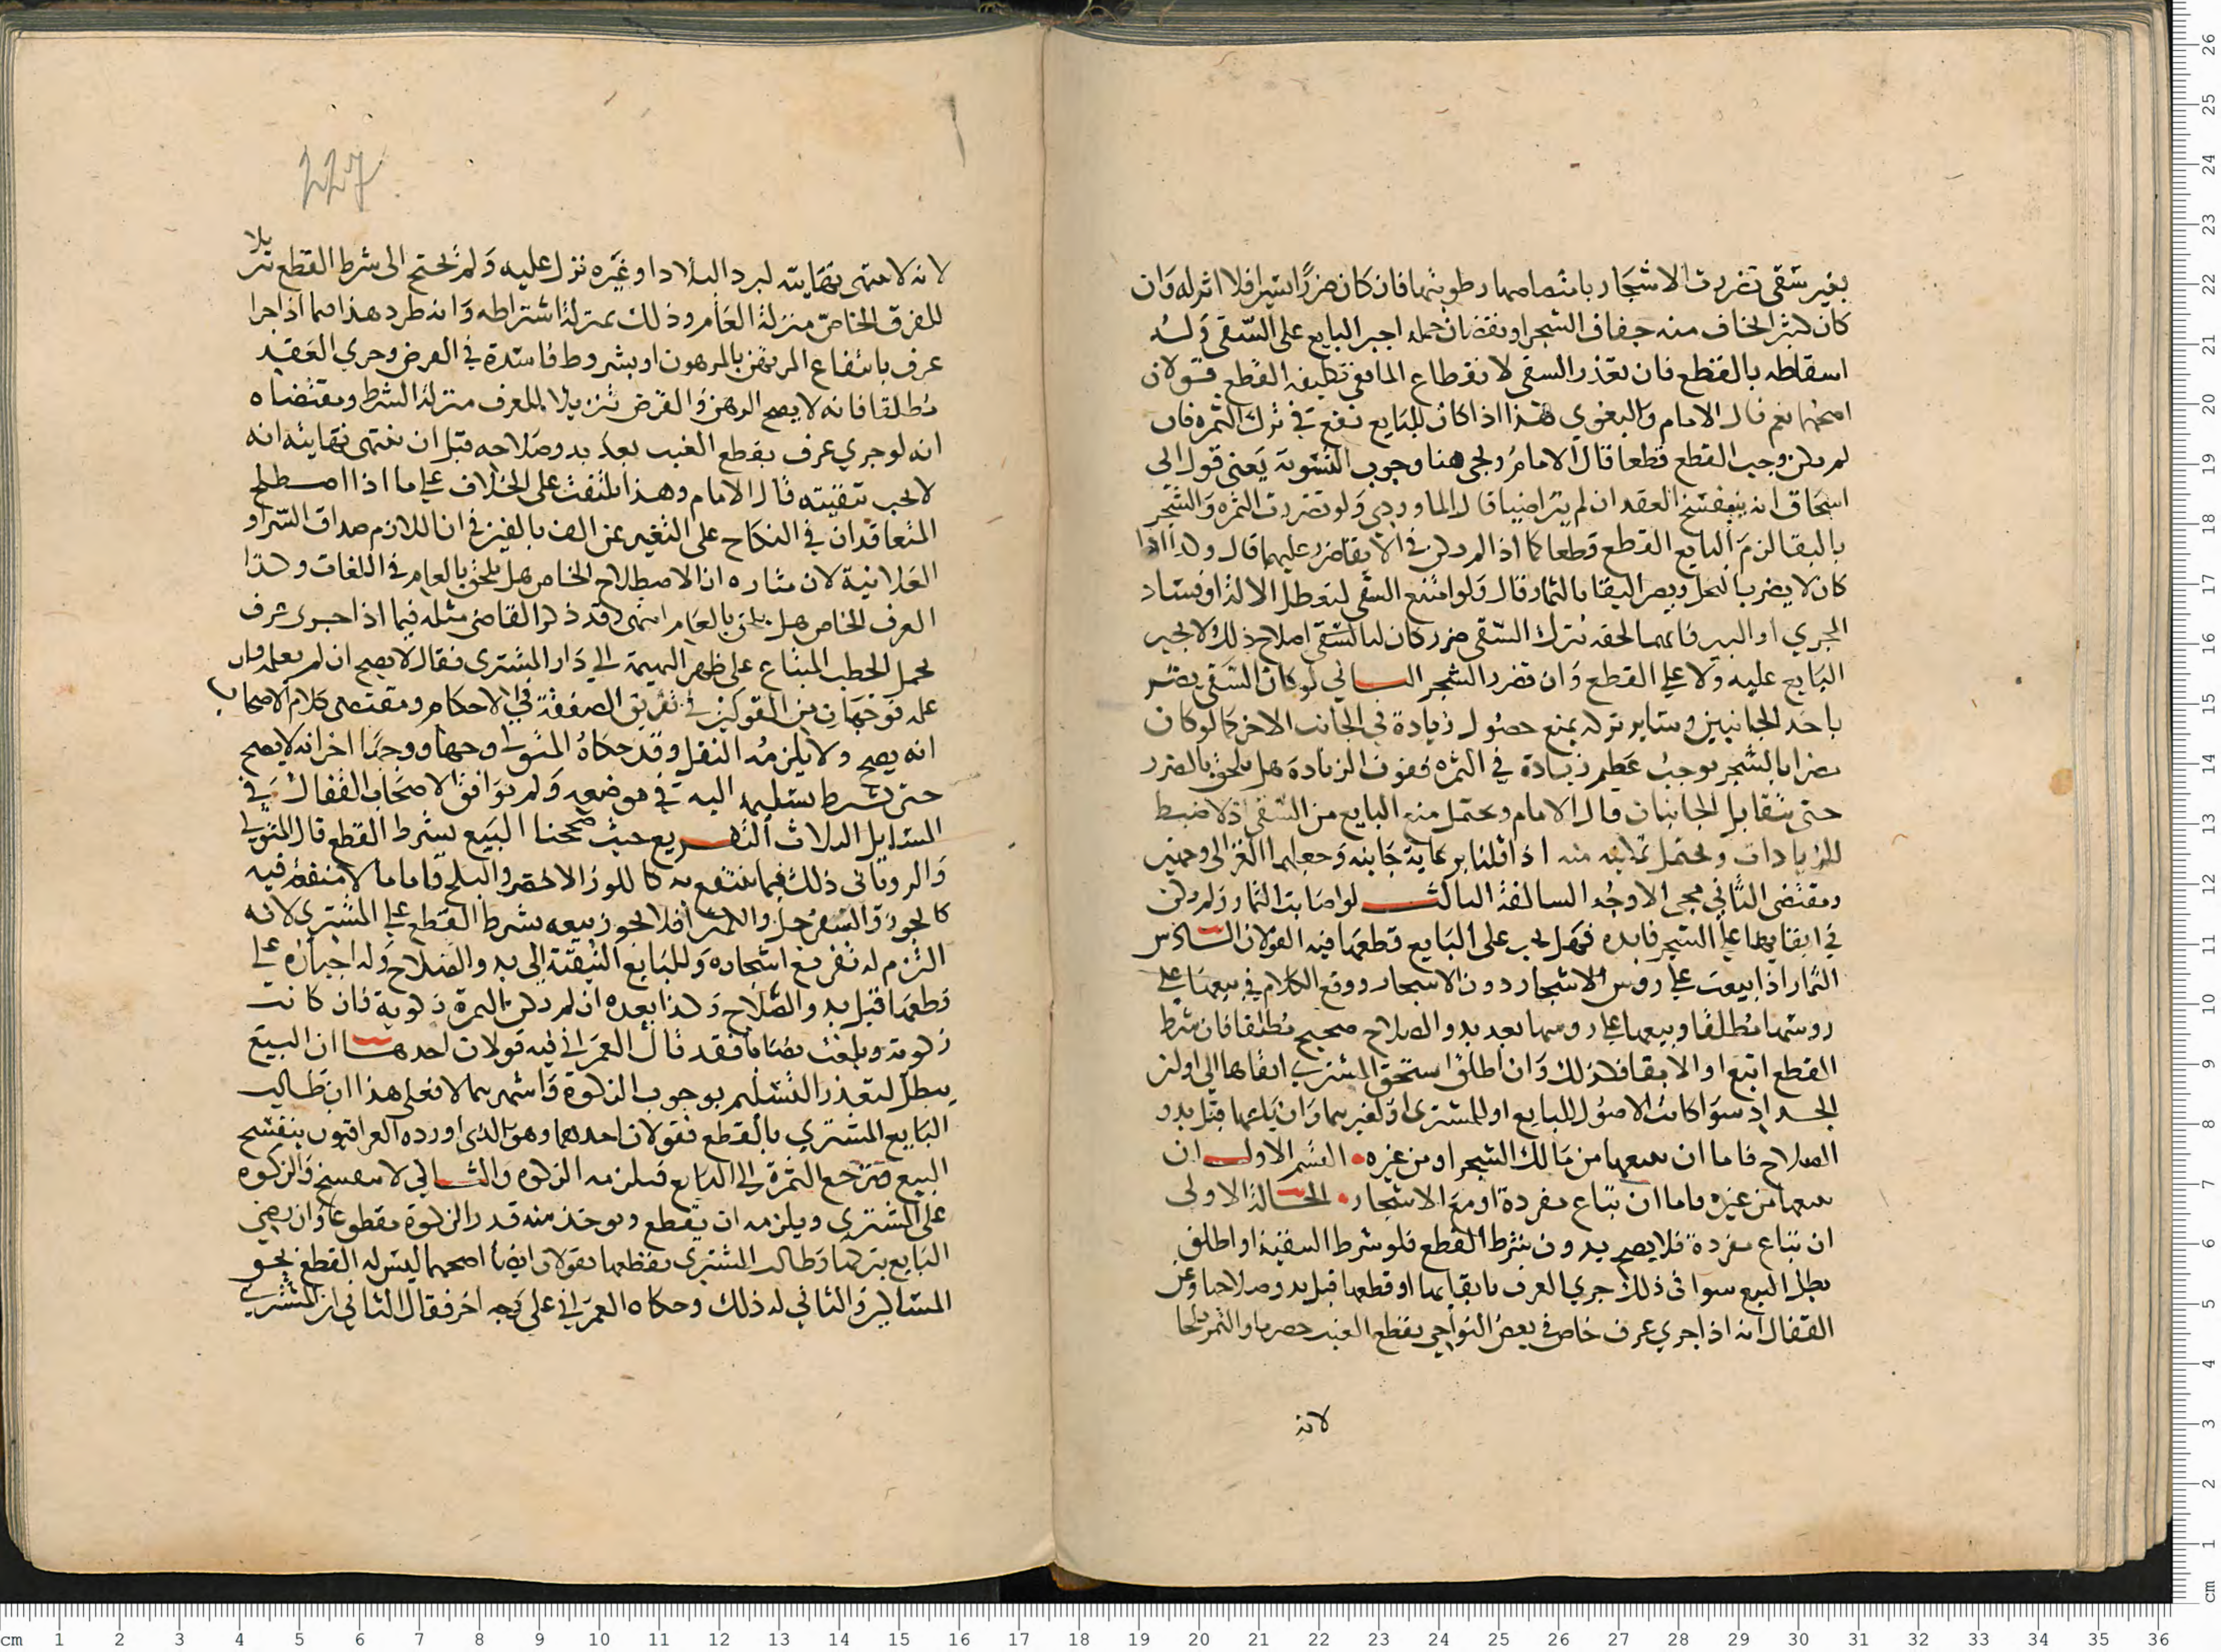 بغير سقى تضررت الاشجار بامتصاصها رطوبتها فان كان ضررا يسيرا فلا اثر له وان
كان كثيرا يخاف منه جفاف الشجر او نقصان حمله اجبر البايع على السقى وله
اسقاطه بالقطع فان تعذر السقى لانقطاع الما ففي تكليفه القطع قولان
اصحهما نعم قال الامام والبغوي هذا اذا كان للبايع نفع في ترك الثمره فان
لم يكن وجب القطع قطعا قال الامام ويجى هنا وجوب التسوية يعنى قول ابي
اسحاق انه ينفسخ العقد ان لم يتراضيا قال الماوردي ولو تضررت الثمره والشجر
بالبقا لزم البايع القطع قطعا كما اذا لم يكن في الابقا ضرر عليهما قال وكذا اذا
كان لا يضر بالنخل ويضر البقا بالثمار قال ولو امتنع السقى لتعطل الالة او فساد
المجري او البير فايهما لحقه بترك السقى ضرر كان له السقى اصلاح ذلك لا يجبر
البايع عليه ولا على القطع وان تضرر الشجر الثاني لو كان السقى يضر
باحد الجانبين وساير تركه يمنع حصول زيادة في الجانب الاخر كما لو كان
مضرا بالشجر يوجب عظيم زيادة في الثمره ففوت الزيادة هل يلحق بالضرر
حتى يتقابل الجانبان قال الامام ويحتمل منع البايع من السقى اذ لا ضبط
للزيادات ويحتمل تمكينه منه اذا قلنا برعاية جانبه وجعلهما الغزالى وجهين
ومقتضى الثاني مجى الاوجه السالفة الثالث لو اصابت الثمار ولم يكن
في ابقايها على الشجر فايده فهل يجب على البايع قطعها فيه القولان السادس
الثمار اذا بيعت على روس الاشجار دون الاشجار ووقع الكلام في بيعها على
روسها مطلقا وبيعها على روسها بعد بدو الصلاح صحيح مطلقا فان شرط
القطع اتبع او الابقا فكذلك وان اطلق استحق المشترى ابقاها الى اوان
الجداد سوا كانت الاصول للبايع او للمشترى او لغيرهما وان باعها قبل بدو
الصلاح فاما ان يبيعها من مالك الشجر او من غيره القسم الاول ان
يبيعها من غيره فاما ان تباع مفردة او مع الاشجار الحالة الاولى
ان تباع مفردة فلا يصح بدون شرط القطع فلو شرط التبقية او اطلق
بطل البيع سوا في ذلك جري العرف بابقايها او قطعها قبل بدو صلاحها وعن
القفال انه اذا جري عرف خاص في بعض النواحي بقطع العنب حصرما والثمر بلحا
لانه
227
لانه لا ينتهى نهايته لبرد البلاد او غيره نزل عليه ولم يحتج الى شرط القطع تنزيلا
للعرف الخاص منزلة العام وذلك بمنزلة اشتراطه وانه طرد هذا فيما اذا جرا
عرف بانتفاع المرتهن بالمرهون او بشروط فاسدة في القرض وجري العقد
مطلقا فانه لا يصح الرهن والقرض تنزيلا للعرف منزلة الشرط ومقتضاه
انه لو جري عرف بقطع العنب بعد بدو صلاحه قبل ان ينتهى نهايته انه
لا يجب تبقيته قال الامام وهذا يلتفت على الخلاف على ما اذا اصطلح
المتعاقدان في النكاح على التعبير عن الف بالفين في ان اللازم صداق السر او
العلانية لان مثاره ان الاصطلاح الخاص هل يلحق بالعام في اللغات وكذا
العرف الخاص هل يلحق بالعام انتهى وقد ذكر القاضى مثله فيما اذا جرى عرف
بحمل الحطب المبتاع على ظهر البهيمة الى دار المشترى فقال لا يصح ان لم يعلم فان
علم فوجهان من القولين في تفريق الصفقة في الاحكام ومقتضى كلام الاصحاب
انه يصح ولا يلزمه النقل وقد حكاه المتولى وجها ووجها اخر انه لا يصح
حتى يشرط تسليمه اليه في موضعه ولم يوافق الاصحاب القفال في
المسايل الثلاث التفريع حيث صححنا البيع بشرط القطع قال المتولى
والرويانى ذلك فيما ينتفع به كاللوز الاخضر والبلح فاما ما لا منفعة فيه
كالجوز والسفرجل والكمثرا فلا يجوز بيعه بشرط القطع على المشترى لانه
التزم له تفريغ اشجاره وللبايع التبقية الى بدو الصلاح وله اجباره على
قطعها قبل بدو الصلاح وكذا بعده ان لم يكن الثمرة زكوية فان كانت
زكوية وبلغت نصابا فقد قال العمراني فيه قولان احدهما ان البيع
يبطل لتعذر التسليم بوجوب الزكوة واشهرهما لا فعلى هذا ان طالب
البايع المشتري بالقطع فقولان احدهما وهو الذى اورده العراقيون ينفسخ
البيع فترجع الثمرة الى البايع فيلزمه الزكوه والثاني لا ينفسخ والزكوه
على المشترى ويلزمه ان يقطع ويوخذ منه قدر الزكوة مقطوعا وان رضي
البايع بتركها وطالب المشترى بقطعها فقولان ايضا اصحهما ليس له القطع لحق
المساكين والثاني له ذلك وحكاه العمراني على وجه اخر فقال الثاني ان المشتري